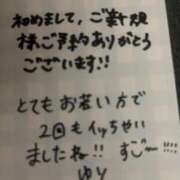 初めまして、ご新規
様ご予約ありがとう
ございます!!
とてもお若い方で
2回もイッちゃい
ましたね!! すご〜!!!
ゆり